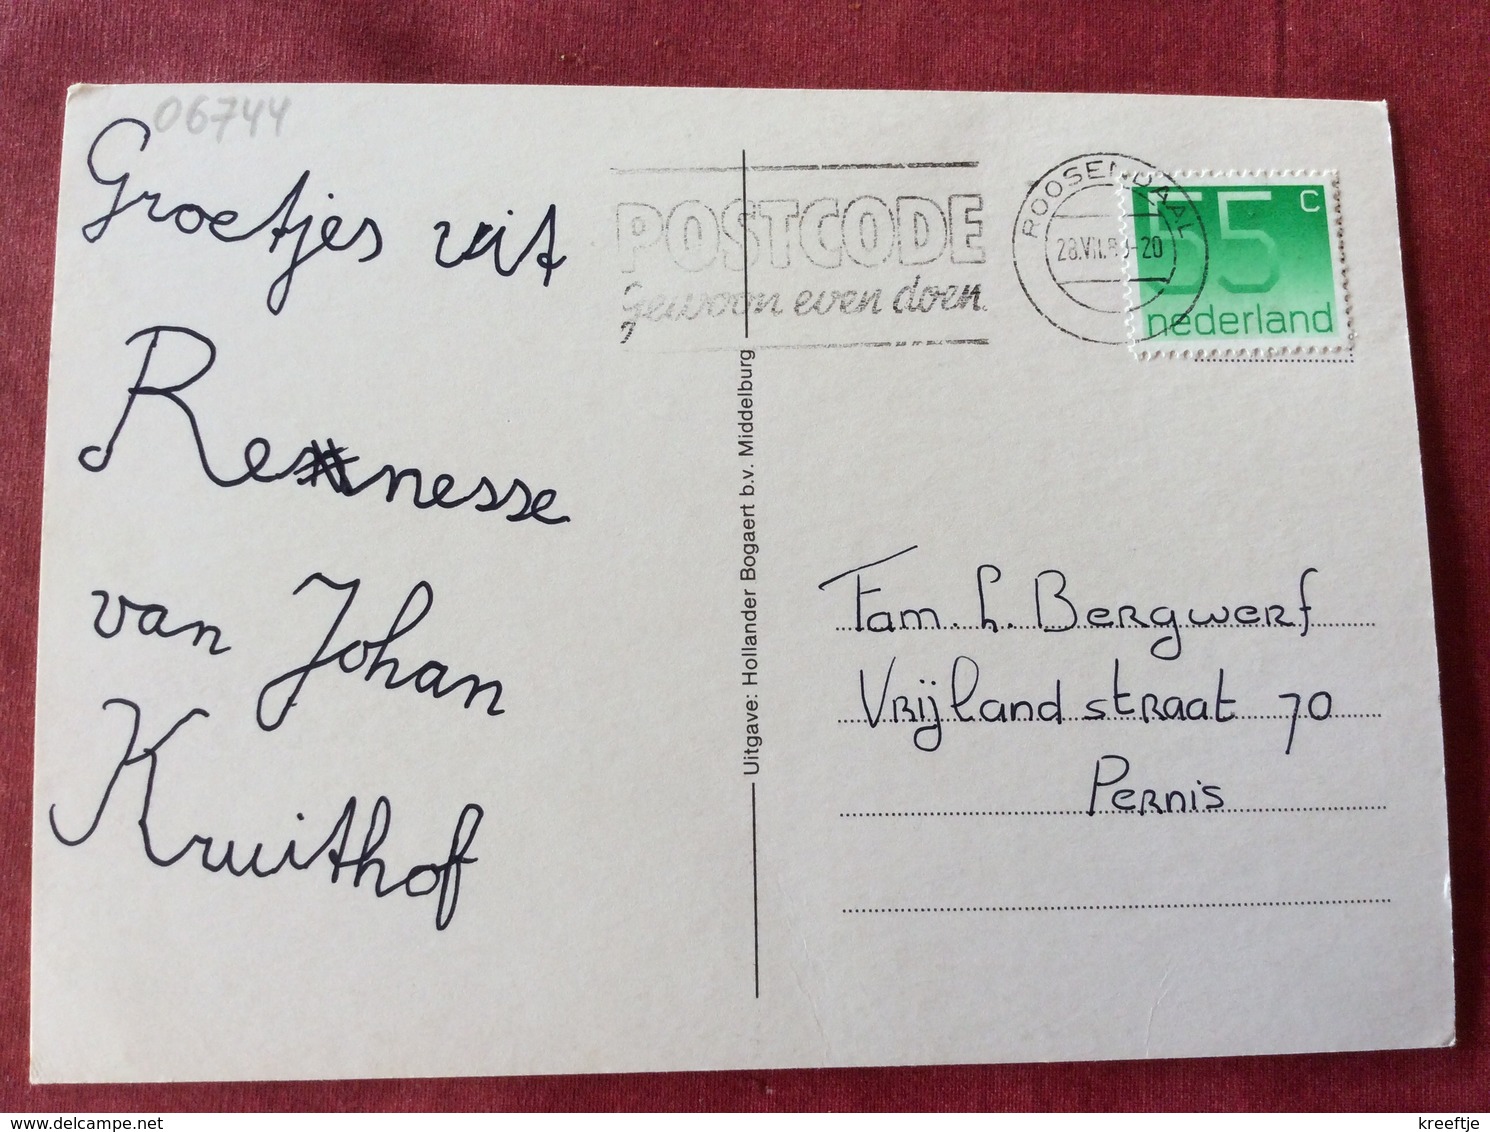 06744
Groetjes uit
Renesse
van Johan
Kruithof
POSTCODE
gewoon even doen
ROOSENDAAL
55 c
nederland
Uitgave: Hollander Bogaert b.v. Middelburg
Fam. h. Bergwerf
Vrijlandstraat 70
Pernis
www.delcampe.net
kreeftje